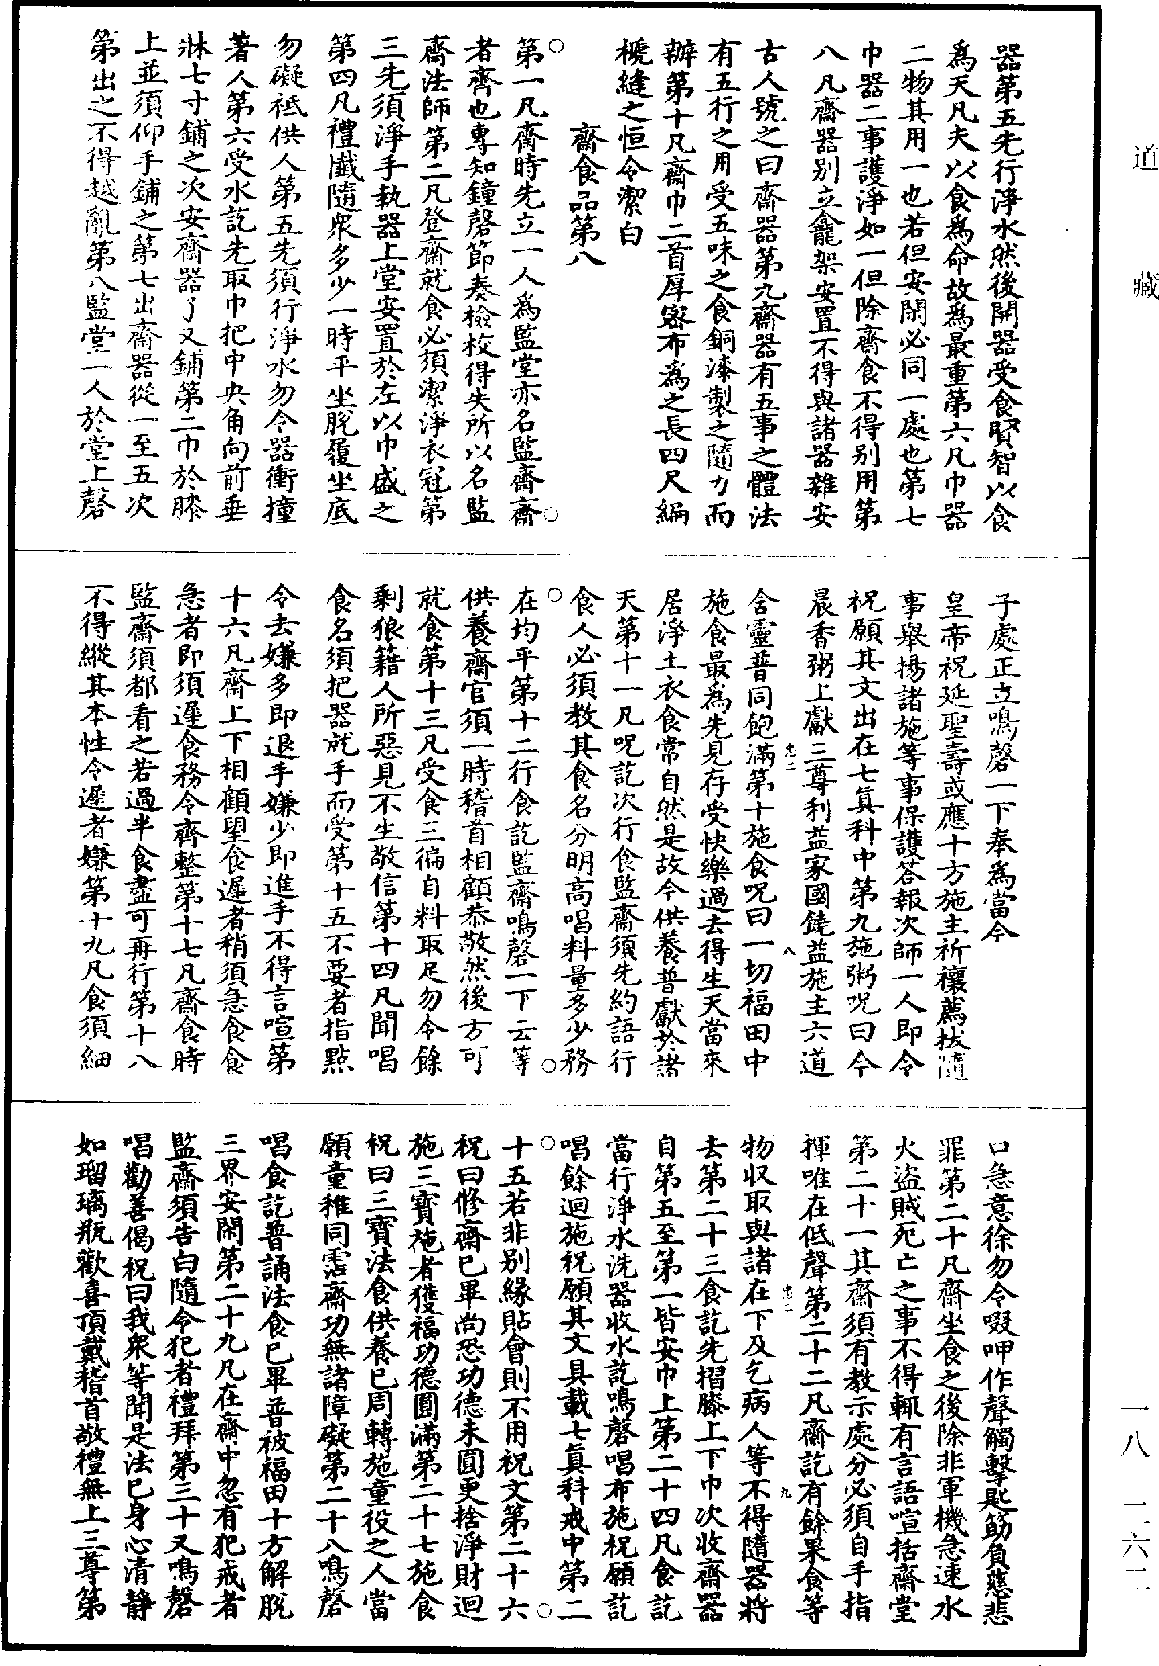 道藏
一八 一六二
器第五先行淨水然後開器受食賢智以食
為天凡夫以食為命故為最重第六凡巾器
二物其用一也若但安閑必同一處也第七
巾器二事護淨如一但除齋食不得別用第
八凡齋器別立龕架安置不得與諸器雜安
古人號之曰齋器第九齋器有五事之體法
有五行之用受五味之食銅漆製之隨力而
辦第十凡齋巾二首厚密布為之長四尺編
樞縫之恒令潔白
齋食品第八
第一凡齋時先立一人為監堂亦名監齋齋
者齊也專知鐘磬節奏檢校得失所以名監
齋法師第二凡登齋就食必須潔淨衣冠第
三先須淨手執器上堂安置於左以巾盛之
第四凡禮懺隨眾多少一時平坐脫履坐底
勿礙祗供人第五先須行淨水勿令器衝撞
著人第六受水訖先取巾把中央角向前垂
牀七寸鋪之次安齋器了又鋪第二巾於膝
上並須仰手鋪之第七出齋器從一至五次
第出之不得越亂第八監堂一人於堂上磬
子處正立鳴磬一下奉為當今
皇帝祝延聖壽或應十方施主祈禳薦拔隨
事舉揚諸施等事保護答報次師一人即令
祝願其文出在七真科中第九施粥呪曰今
晨香粥上獻三尊利益家國饒益施主六道
含靈普同飽滿第十施食呪曰一切福田中
施食最為先見存受快樂過去得生天當來
居淨土衣食常自然是故今供養普獻於諸
天第十一凡呪訖次行食監齋須先約語行
食人必須教其食名分明高唱料量多少務
在均平第十二行食訖監齋鳴磬一下云等
供養齋官須一時稽首相顧恭敬然後方可
就食第十三凡受食三徧自料取足勿令餘
剩狼籍人所惡見不生敬信第十四凡聞唱
食名須把器就手而受第十五不要者指點
令去嫌多即退手嫌少即進手不得言喧第
十六凡齋上下相顧望食遲者稍須急食食
急者即須遲食務令齊整第十七凡齋食時
監齋須都看之若過半食盡可再行第十八
不得縱其本性令遲者嫌第十九凡食須細
口急意徐勿令啜呷作聲觸擊匙筯負慈悲
罪第二十凡齋坐食之後除非軍機急速水
火盜賊死亡之事不得輒有言語喧括齋堂
第二十一其齋須有教示處分必須自手指
揮唯在低聲第二十二凡齋訖有餘果食等
物收取與諸在下及乞病人等不得隨器將
去第二十三食訖先摺膝上下巾次收齋器
自第五至第一皆安巾上第二十四凡食訖
當行淨水洗器收水訖鳴磬唱布施祝願訖
唱餘迴施祝願其文具載七真科戒中第二
十五若非別緣貼會則不用祝文第二十六
祝曰修齋已畢尚恐功德未圓更捨淨財迴
施三寶施者獲福功德圓滿第二十七施食
祝曰三寶法食供養已周轉施童役之人當
願童稚同霑齋功無諸障礙第二十八鳴磬
唱食訖普誦法食已畢普被福田十方解脫
三界安閑第二十九凡在齋中忽有犯戒者
監齋須告白隨令犯者禮拜第三十又鳴磬
唱勸善偈祝曰我眾等聞是法已身心清靜
如瑠璃瓶歡喜頂戴稽首敬禮無上三尊第